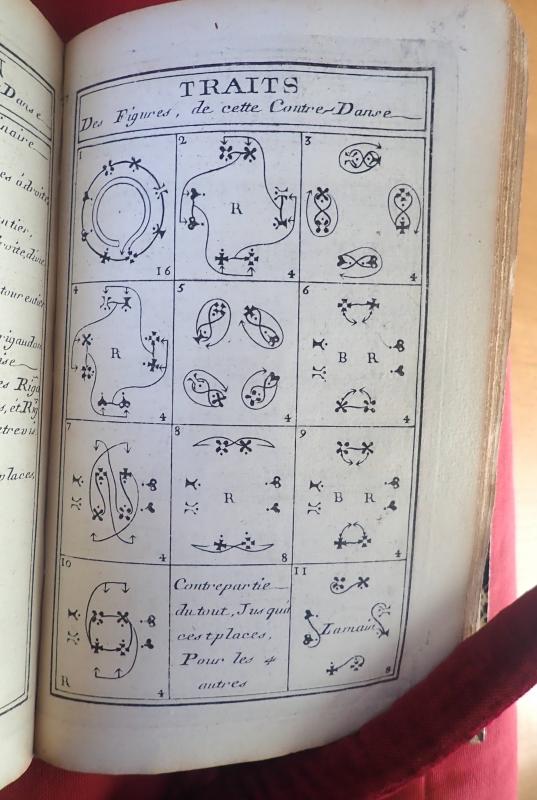 Danse
naire
es à droite,
ntier,
droite, d'une
tour entier
rigaudon
es Riga
s, et Rig
places,
TRAITS
Des Figures, de cette Contre-Danse
1
16
2
R
4
3
4
4
R
4
5
4
6
B R
4
7
4
8
R
8
9
B R
4
10
R
4
Contrepartie
du tout, Jusqua
ces t places,
Pour les 4
autres
11
Lamain
8